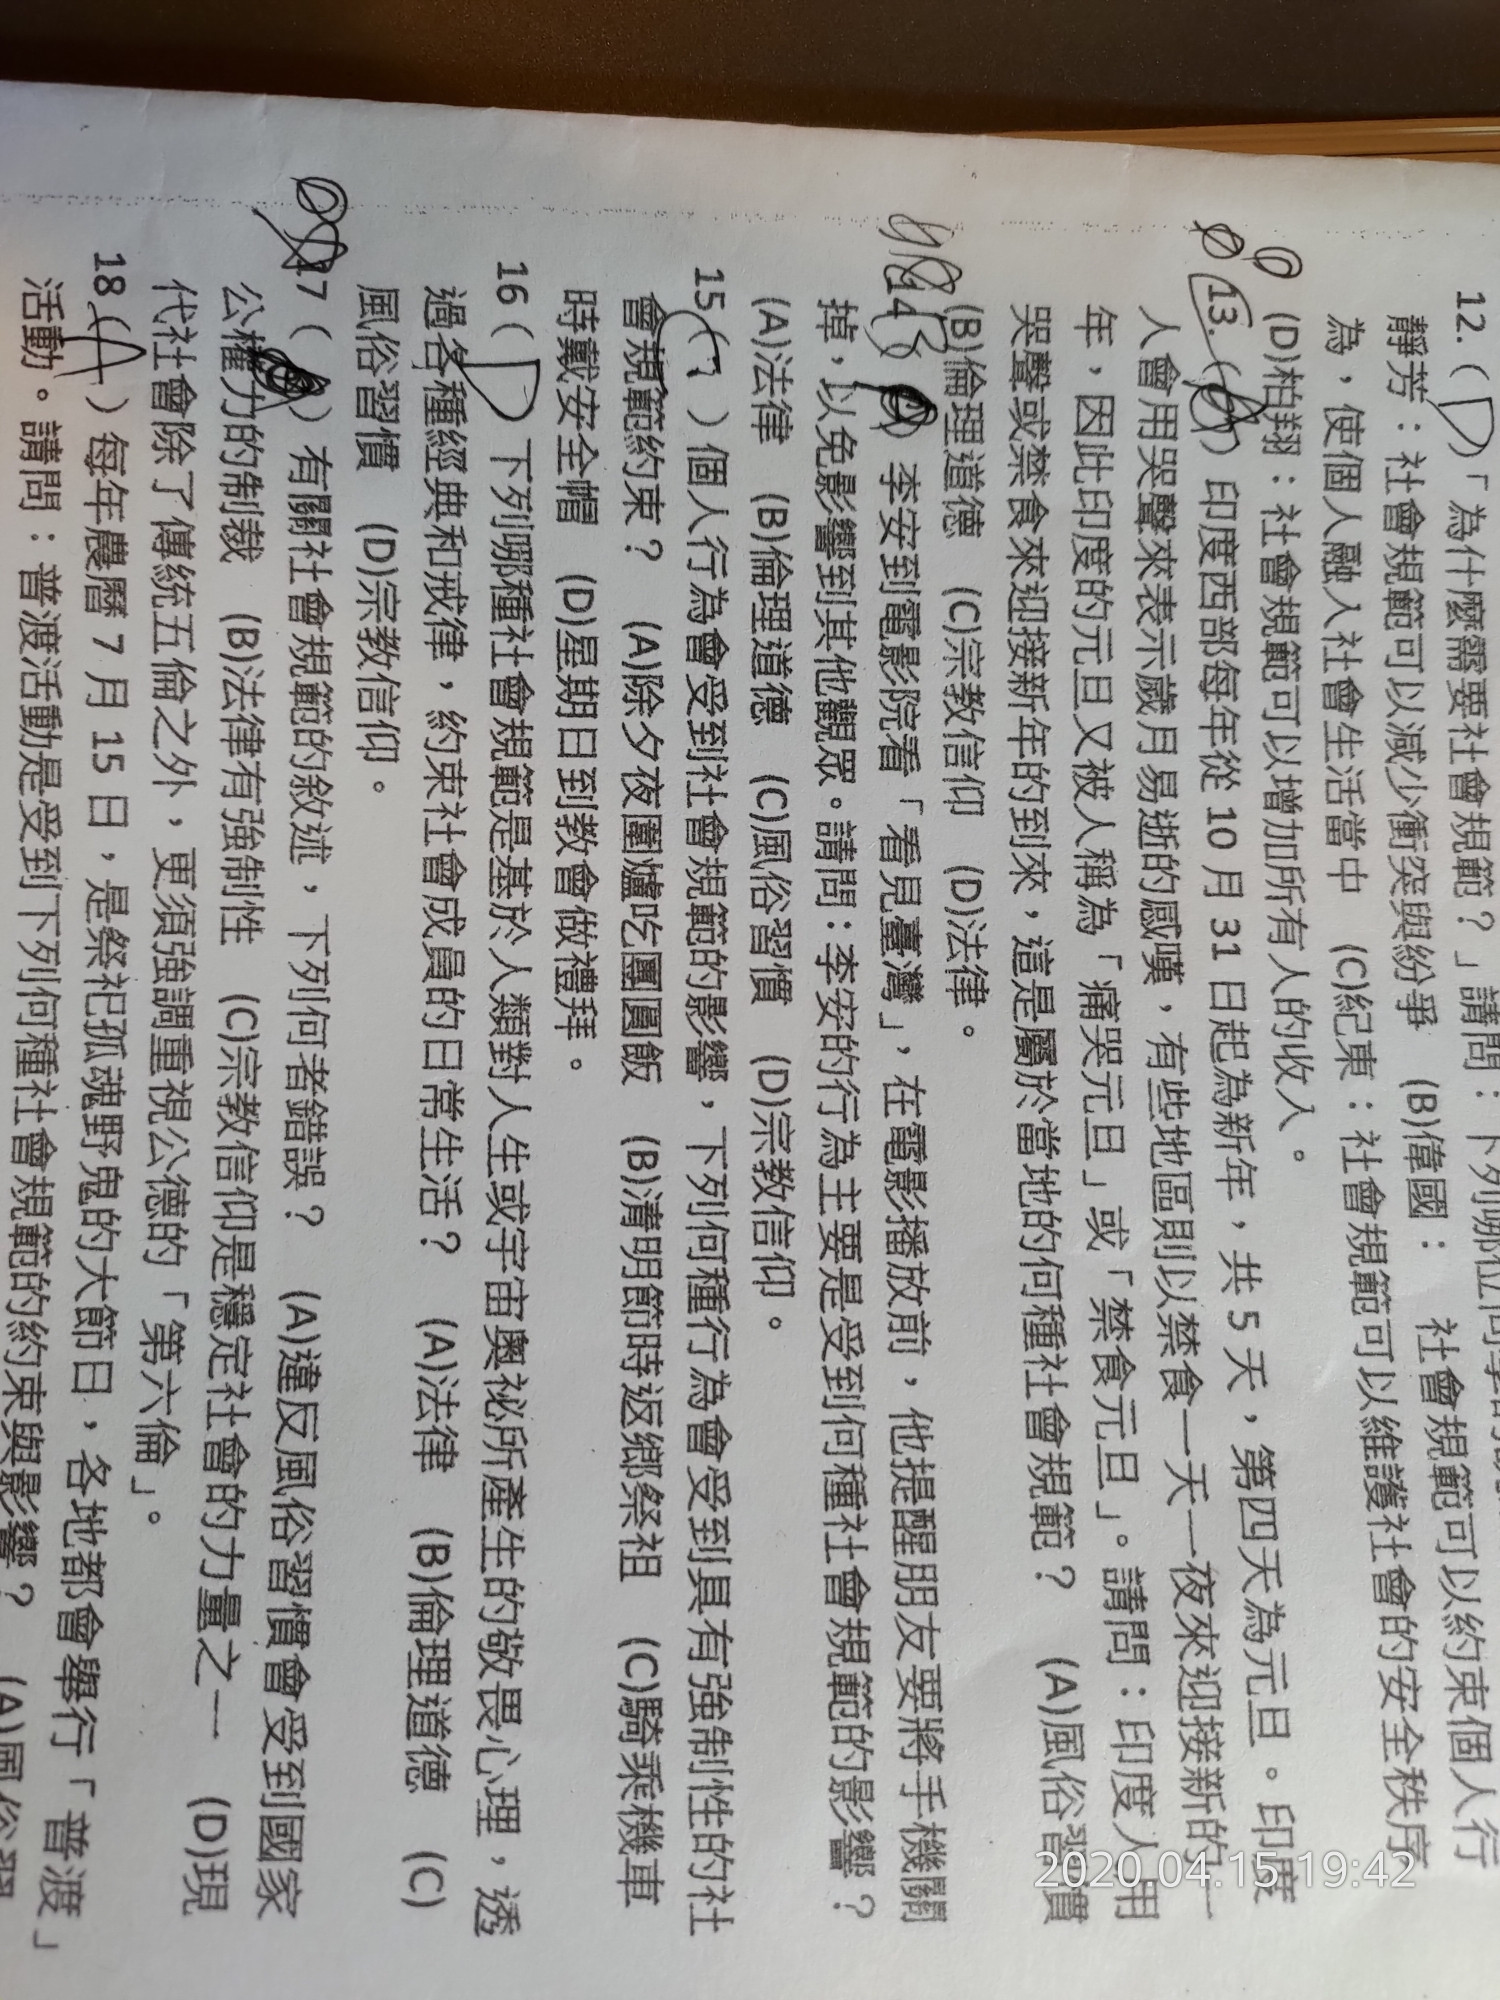 12.(D)「為什麼需要社會規範？」請問：下列哪位同學
靜芳：社會規範可以減少衝突與紛爭 (B)偉國： 社會規範可以約束個人行
為，使個人融入社會生活當中 (C)紀東：社會規範可以維護社會的安全秩序
(D)柏翔：社會規範可以增加所有人的收入。
13.( ) 印度西部每年從 10 月 31 日起為新年，共 5 天，第四天為元旦。印度
人會用哭聲來表示歲月易逝的感嘆，有些地區則以禁食一天一夜來迎接新的一
年，因此印度的元旦又被人稱為「痛哭元旦」或「禁食元旦」。請問：印度人用
哭聲或禁食來迎接新年的到來，這是屬於當地的何種社會規範？ (A)風俗習慣
(B)倫理道德 (C)宗教信仰 (D)法律。
14( ) 李安到電影院看「看見臺灣」，在電影播放前，他提醒朋友要將手機關
掉，以免影響到其他觀眾。請問：李安的行為主要是受到何種社會規範的影響？
(A)法律 (B)倫理道德 (C)風俗習慣 (D)宗教信仰。
15( ) 個人行為會受到社會規範的影響，下列何種行為會受到具有強制性的社
會規範約束？ (A)除夕夜圍爐吃團圓飯 (B)清明節時返鄉祭祖 (C)騎乘機車
時戴安全帽 (D)星期日到教會做禮拜。
16(D) 下列哪種社會規範是基於人類對人生或宇宙奧祕所產生的敬畏心理，透
過各種經典和戒律，約束社會成員的日常生活？ (A)法律 (B)倫理道德 (C)
風俗習慣 (D)宗教信仰。
17( ) 有關社會規範的敘述，下列何者錯誤？ (A)違反風俗習慣會受到國家
公權力的制裁 (B)法律有強制性 (C)宗教信仰是穩定社會的力量之一 (D)現
代社會除了傳統五倫之外，更須強調重視公德的「第六倫」。
18(A) 每年農曆 7 月 15 日，是祭祀孤魂野鬼的大節日，各地都會舉行「普渡」
活動。請問：普渡活動是受到下列何種社會規範的約束與影響？ (A)風俗習
2020.04.15 19:42